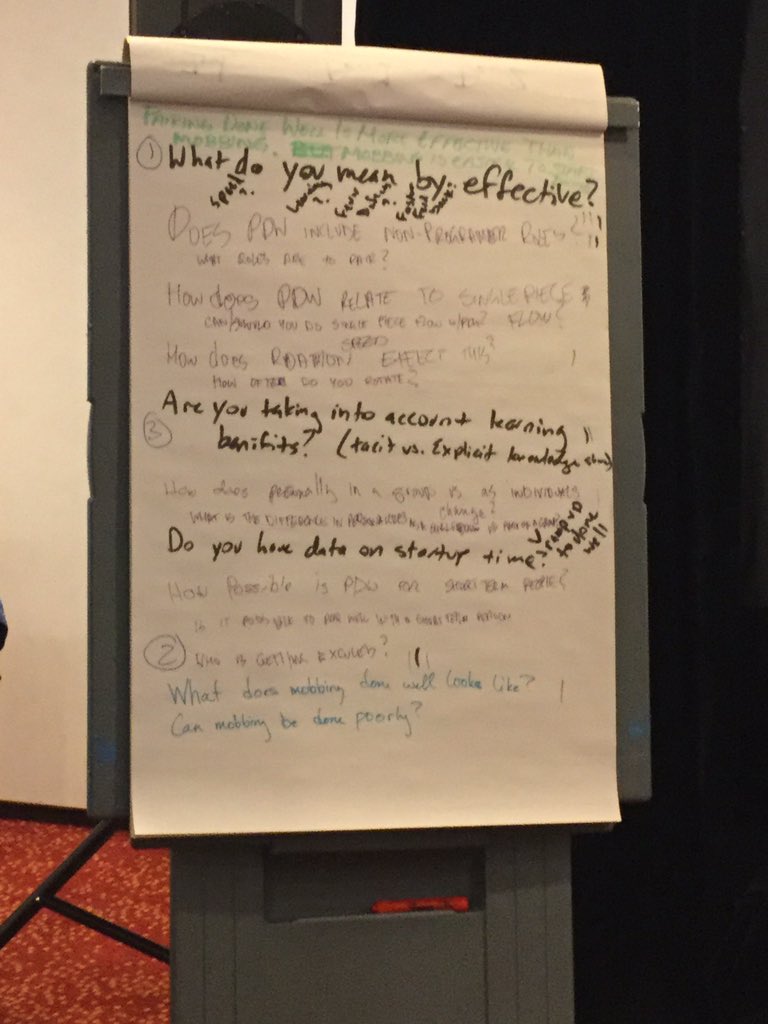 PAIRING DONE WELL IS MORE EFFECTIVE THAN
MOBBING. MOBBING IS EASIER TO
① What do you mean by effective?
DOES PDW INCLUDE NON-PROGRAMER ROLES?
WHAT ROLES ARE TO PAIR?
How does PDW RELATE TO SINGLE PIECE
CAN/SHOULD YOU DO SINGLE PIECE FLOW W/PDW? FLOW?
SPEED
How does ROTATION EFFECT THIS?
HOW OFTEN DO YOU ROTATE?
Are you taking into account learning
③ benifits? (tacit vs. Explicit knowledge
How does personality in a group vs as INDIVIDUALS
change?
WHAT IS THE DIFFERENCE IN
Do you have data on startup time?
ramp up
to done
well
How Possible is PDW FOR SHORT TERM PEOPLE?
IS IT POSSIBLE TO PAIR WELL WITH A SHORT TERM PERSON
② WHO IS GETTING EXCULED?
What does mobbing done well looks like?
Can mobbing be done poorly?